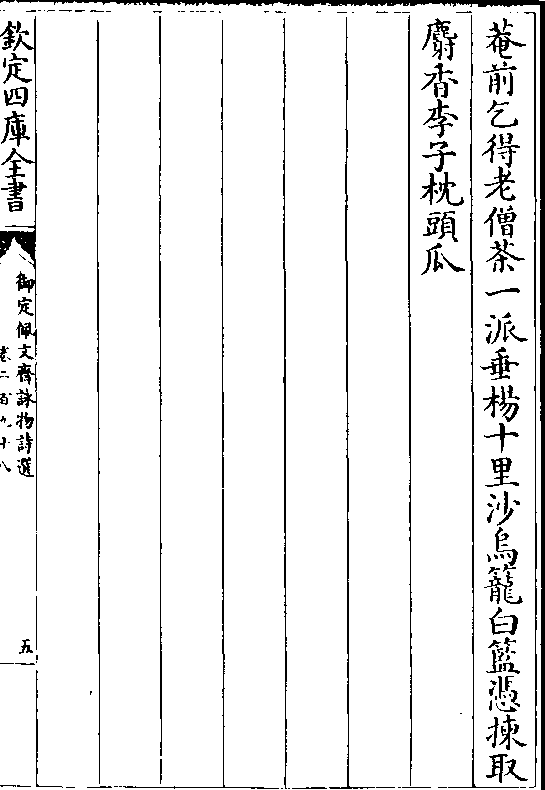 菴前乞得老僧茶一派垂楊十里沙烏籠白籃憑揀取
麝香李子枕頭瓜
欽定四庫全書
御定佩文齋詠物詩選
卷二百九十八
五